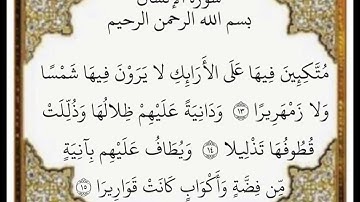 سورة الإنسان
بسم الله الرحمن الرحيم
مُتَّكِئِينَ فِيهَا عَلَى الْأَرَائِكِ لَا يَرَوْنَ فِيهَا شَمْسًا
وَلَا زَمْهَرِيرًا ۝١٣ وَدَانِيَةً عَلَيْهِمْ ظِلَالُهَا وَذُلِّلَتْ
قُطُوفُهَا تَذْلِيلًا ۝١٤ وَيُطَافُ عَلَيْهِم بِآنِيَةٍ
مِّن فِضَّةٍ وَأَكْوَابٍ كَانَتْ قَوَارِيرَا ۝١٥